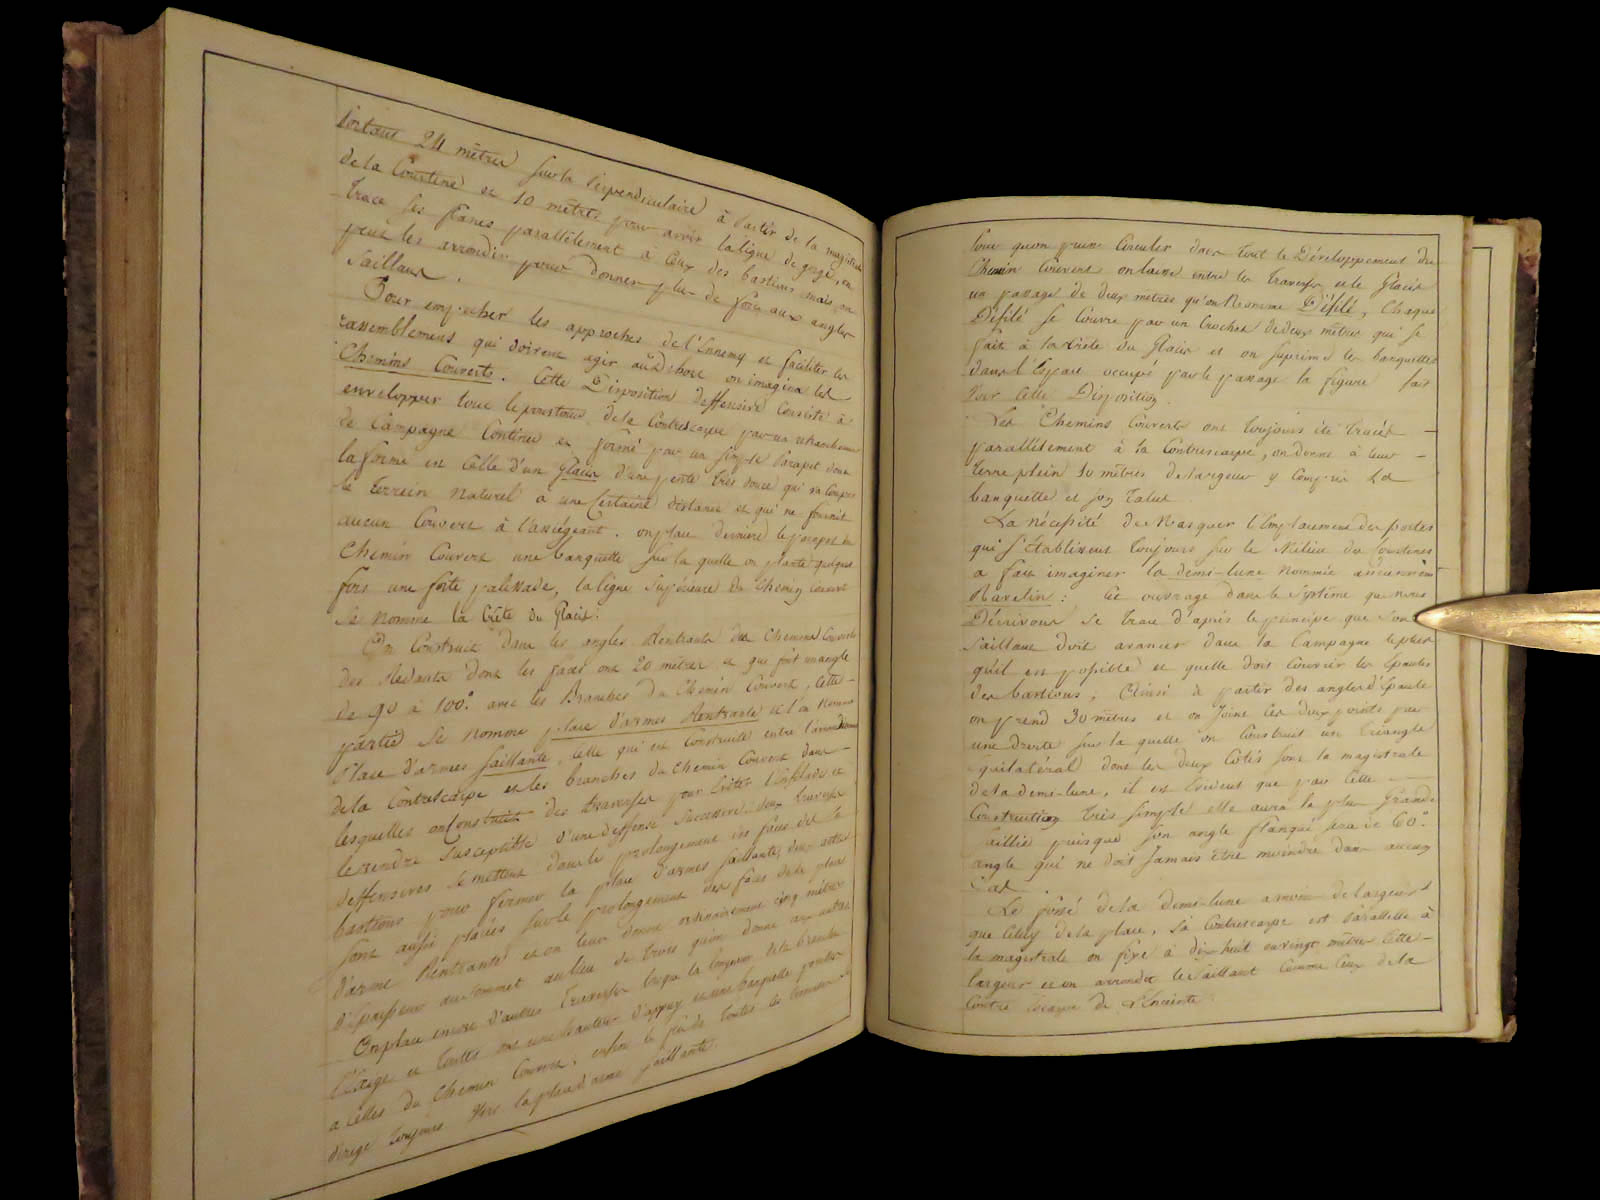 portant 24 mêtres sur la perpendiculaire à partir de la magistrale
de la Courtine et 10 mêtres pour avoir la ligne de gorge, on
trace ses flancs parallêlement à ceux des bastions mais on
peut les arrondir pour donner plus de force aux angles
Saillans.
Pour empêcher les approches de l'Ennemy et faciliter les
rassemblemens qui doivent agir au dehors on imagina les
Chemins Couverts. Cette Disposition deffensive Consiste à
envelopper tout le pourtour de la Contrescarpe par un retranchement
de Campagne Continu et formé par un simple Parapet dont
la forme est Celle d'un Glacis d'une pente très douce qui va Couper
le Terrein Naturel à une Certaine distance et qui ne fournit
aucun Couvert à l'assiégeant. on place derriere le parapet du
Chemin Couvert une banquette sur la quelle on plante quelque
fois une forte palissade, la ligne Supérieure du Chemin couvert
se nomme la Crête du Glacis.
On Construit dans les angles Rentrants des Chemins Couverts
des Redants dont les faces ont 20 mêtres et que font un angle
de 90 à 100.° avec les Branches du Chemin Couvert, Cette
partie se nomme place d'armes Rentrante et l'on nomme
Place d'armes Saillante, celle qui est Construite entre l'arrondissement
de la Contrescarpe et les branches du Chemin Couvert dans
lesquelles on Construit des traverses pour Eviter l'Enfilade et
le rendre susceptible d'une deffense Successive. deux traverses
deffensives se mettent dans le prolongement des faces des
bastions pour fermer la place d'armes saillante, deux autres
sont aussi placées sur le prolongement des faces de la place
d'arme Rentrante et on leur donne ordinairement cinq mêtres
d'Epaisseur au sommet au lieu de trois qu'on donne aux autres
On place encore d'autres Traverses lorsque la longueur de la branche
l'Exige et toutes ont une hauteur d'appuy et une banquette pareilles
a Celles du Chemin Couvert. enfin le
dirige toujours vers la place d'arme saillante.
Pour qu'on puisse Circuler dans tout le Développement du
Chemin Couvert on laisse entre les Traverses et le Glacis
un passage de deux mêtres qu'on Nomme Défilé, Chaque
Défilé se Couvre par un Crochet de deux mêtres qui se
fait à la Crête du Glacis et on suprime les banquettes
dans l'Espace occupé par le passage la figure fait
Voir Cette Disposition.
Les Chemins Couverts ont toujours été tracés
parallêlement à la Contrescarpe, on donne à leur
terre plein 10 mêtres de largeur y Compris la
banquette et son Talus.
La nécessité de Masquer l'Emplacement des portes
qui s'établissent toujours sur le Milieu des Courtines
a fait imaginer la demi-lune nommée anciennement
Ravelin: Cet ouvrage dans le Systême que nous
Décrivons se trace d'après le principe que son
Saillant doit avancer dans la Campagne le plus
qu'il est possible et qu'elle doit Couvrir les épaules
des bastions, Ainsi à partir des angles d'Epaule
on prend 30 mêtres et on joint ces deux points par
une droite sur la quelle on Construit un triangle
équilatéral dont les deux Côtés sont la magistrale
de la demi-lune, il est Evident que par Cette
Construction très simple elle aura la plus grande
saillie puisque son angle flanqué sera de 60.°
angle qui ne doit Jamais être moindre dans aucun
Cas.
Le fossé de la demi-lune a moins de largeur
que Celuy de la place, sa Contrescarpe est parallelle à
la magistrale on fixe à dix huit ou vingt mêtres Cette
largeur et on arrondit le saillant Comme Ceux de la
Contre Escarpe de l'Enceinte